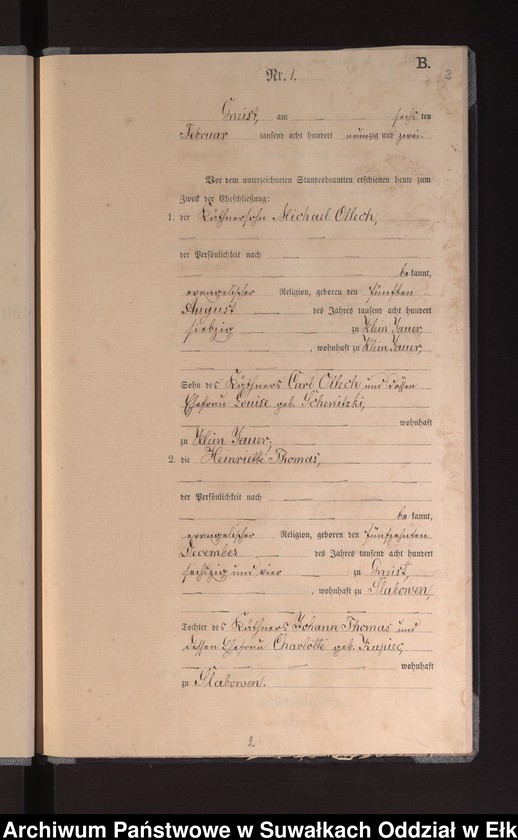 B.
2
Nr. 1.
Gneist, am sechsten
Februar tausend acht hundert neunzig und zwei.
Vor dem unterzeichneten Standesbeamten erschienen heute zum
Zweck der Eheschließung:
1. der Käthnersohn Michael Ollech,
der Persönlichkeit nach
bekannt,
evangelischer Religion, geboren den fünften
August des Jahres tausend acht hundert
siebzig zu Klein Jauer,
, wohnhaft zu Klein Jauer,
Sohn des Käthners Carl Ollech und dessen
Ehefrau Louise geb. Schenitzki,
wohnhaft
zu Klein Jauer;
2. die Heinriette Thomas,
der Persönlichkeit nach
bekannt,
evangelischer Religion, geboren den fünfzehnten
December des Jahres tausend acht hundert
sechszig und vier zu Gneist,
, wohnhaft zu Slabowen,
Tochter des Käthners Johann Thomas und
dessen Ehefrau Charlotte geb. Kupiec,
wohnhaft
zu Slabowen.
2
Archiwum Państwowe w Suwałkach Oddział w Ełk